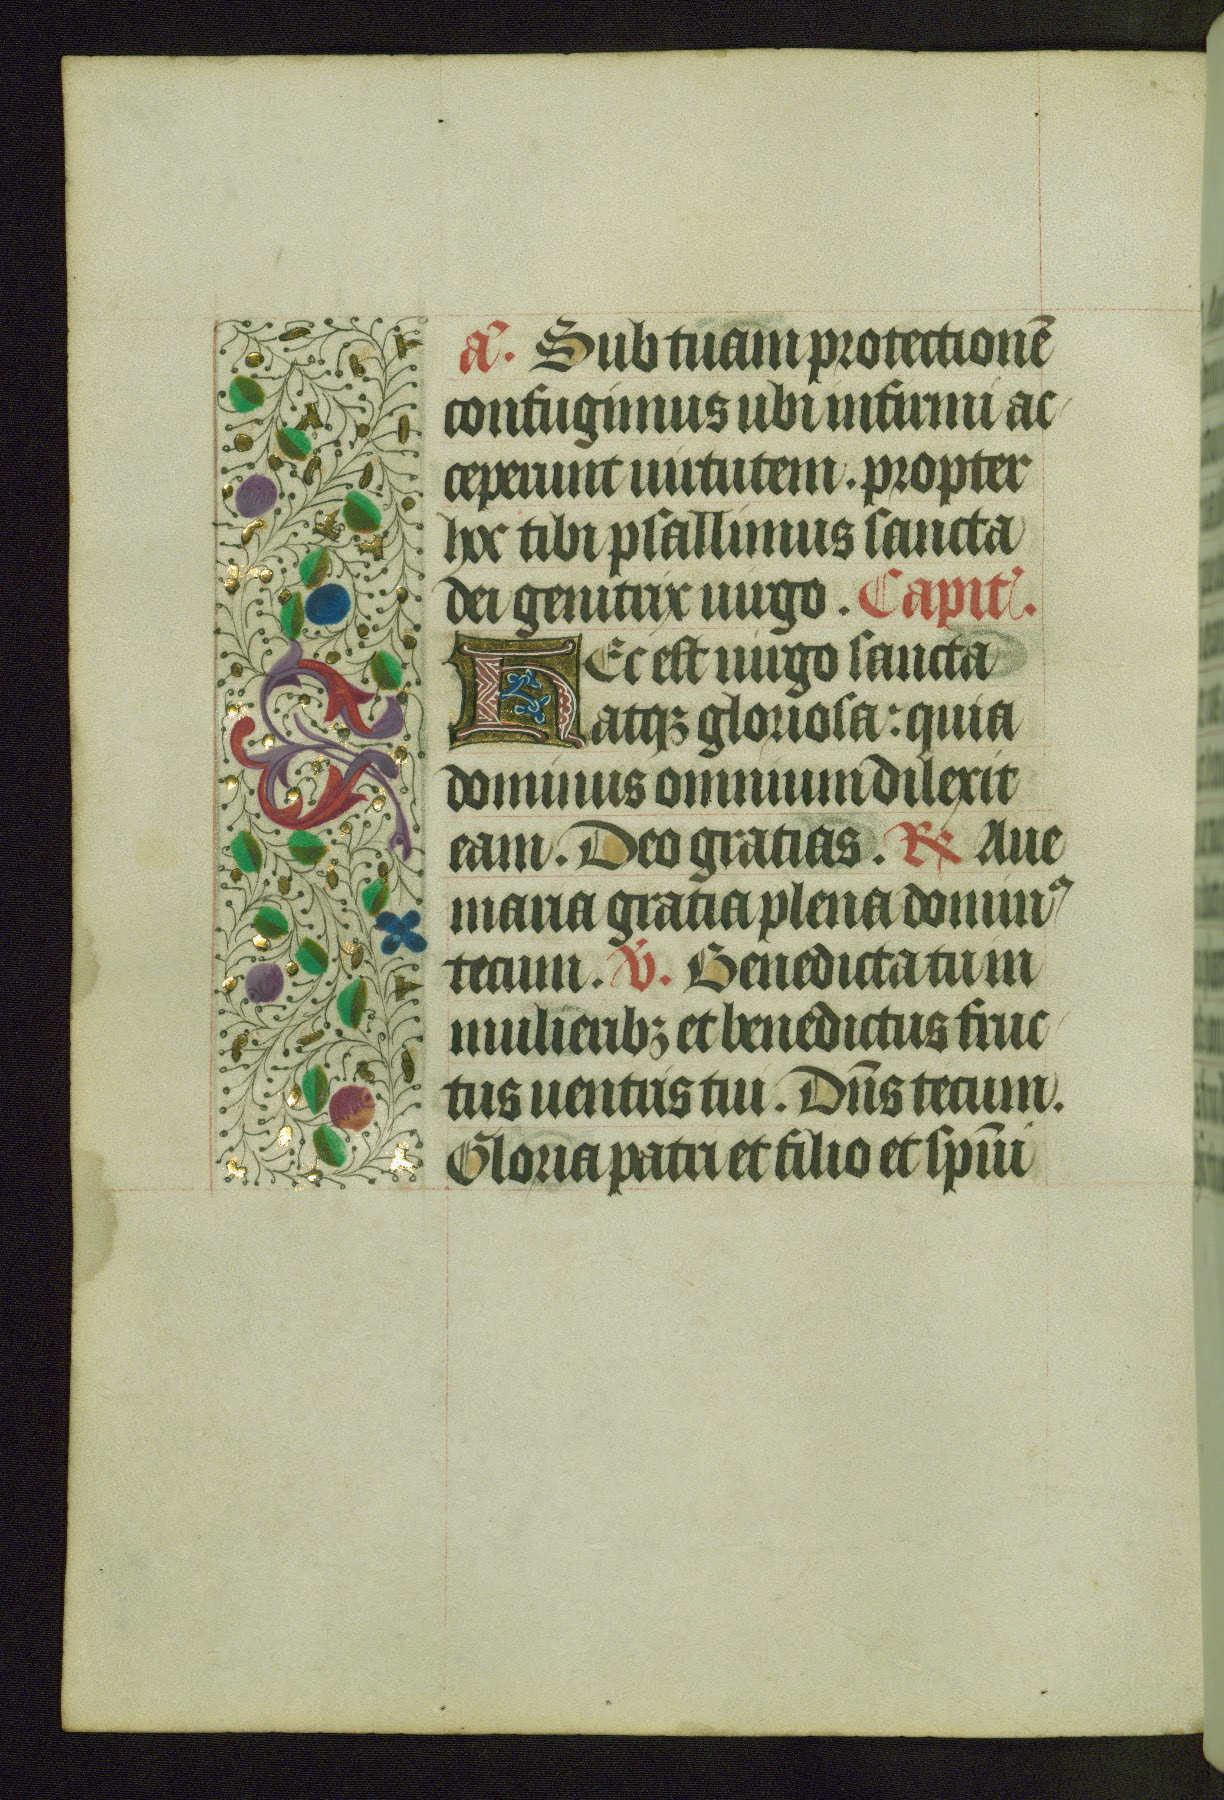 a᷉. Sub tuam protectionē
confugimus ubi infirmi ac
ceperunt uirtutem. propter
hoc tibi psallimus sancta
dei genitrix uirgo. Capit᷉.
HEc est uirgo sancta
atqꝫ gloriosa: quia
dominus omnium dilexit
eam. Deo gratias. R℣ Aue
maria gratia plena dominꝰ
tecum. V᷉. Benedicta tu in
mulieribꝫ et benedictus fruc
tus uentris tui. Dn̄s tecum.
Gloria patri et filio et spiū̄i